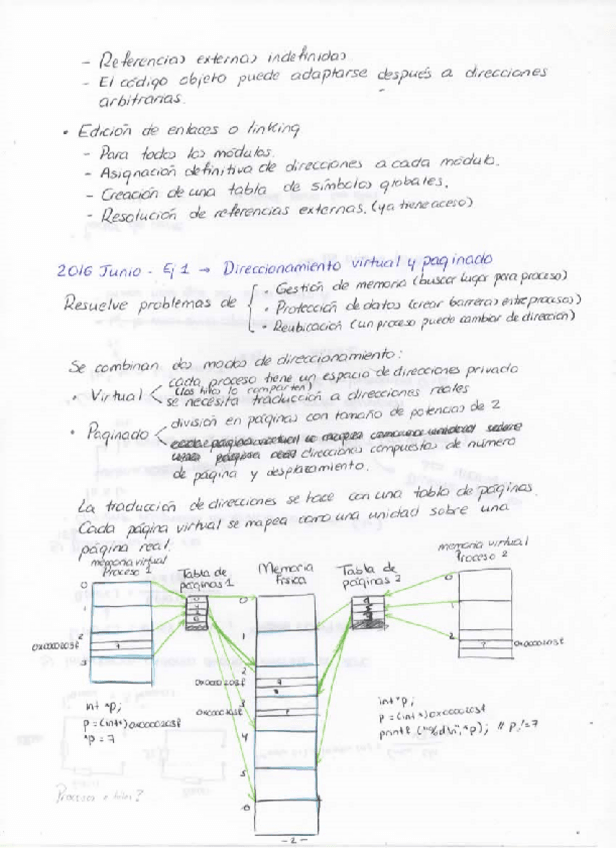 - Referencias externas indefinidas.
- El código objeto puede adaptarse después a direcciones
arbitrarias.
• Edición de enlaces o linking
- Para todos los módulos.
- Asignación definitiva de direcciones a cada módulo.
- Creación de una tabla de símbolos globales.
- Resolución de referencias externas. (ya tiene acceso)
2016 Junio - Ej 1 → Direccionamiento virtual y paginado
Resuelve problemas de
• Gestión de memoria (buscar lugar para proceso)
• Protección de datos (crear barreras entre procesos)
• Reubicación (un proceso puede cambiar de dirección)
Se combinan dos modos de direccionamiento:
• Virtual
cada proceso tiene un espacio de direcciones privado
(los hilos lo comparten)
se necesita traducción a direcciones reales
• Paginado
división en páginas con tamaño de potencias de 2
direcciones compuestas de número
de página y desplazamiento.
La traducción de direcciones se hace con una tabla de páginas.
Cada página virtual se mapea como una unidad sobre una
página real.
memoria virtual
Proceso 1
Tabla de
páginas 1
Memoria
Física
Tabla de
páginas 2
memoria virtual
Proceso 2
0
1
2
0x0000203f
7
3
0
1
2
3
4
5
6
0
1
2
7
0x0000203f
int *p;
p = (int*)0x0000203f
*p = 7
int *p;
p = (int*)0x0000203f
printf ("%d\n", *p); // p != 7
Procesos e hilos?
- 2 -